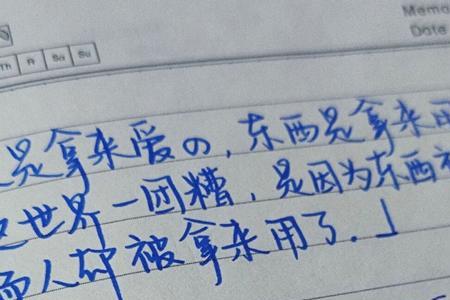 Memo
Date
Th Fr Sa Su
是拿来爱の,东西是拿来用
世界一团糟,是因为东西被
而人却被拿来用了.」